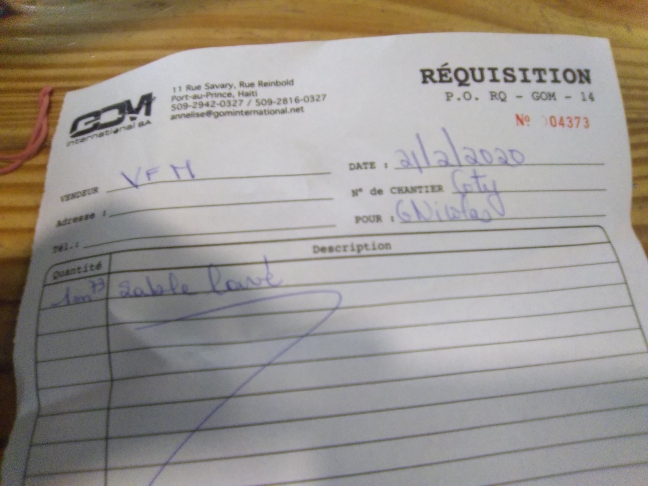 GOM
international SA
11 Rue Savary, Rue Reinbold
Port-au-Prince, Haiti
509-2942-0327 / 509-2816-0327
annelise@gominternational.net
RÉQUISITION
P.O. RQ - GOM - 14
Nº 04373
VENDEUR VFM
DATE : 21/2/2020
Adresse :
Nº de CHANTIER Coty
Tél.:
POUR : GNicolas
Quantité Description
1m³ Sable lavé